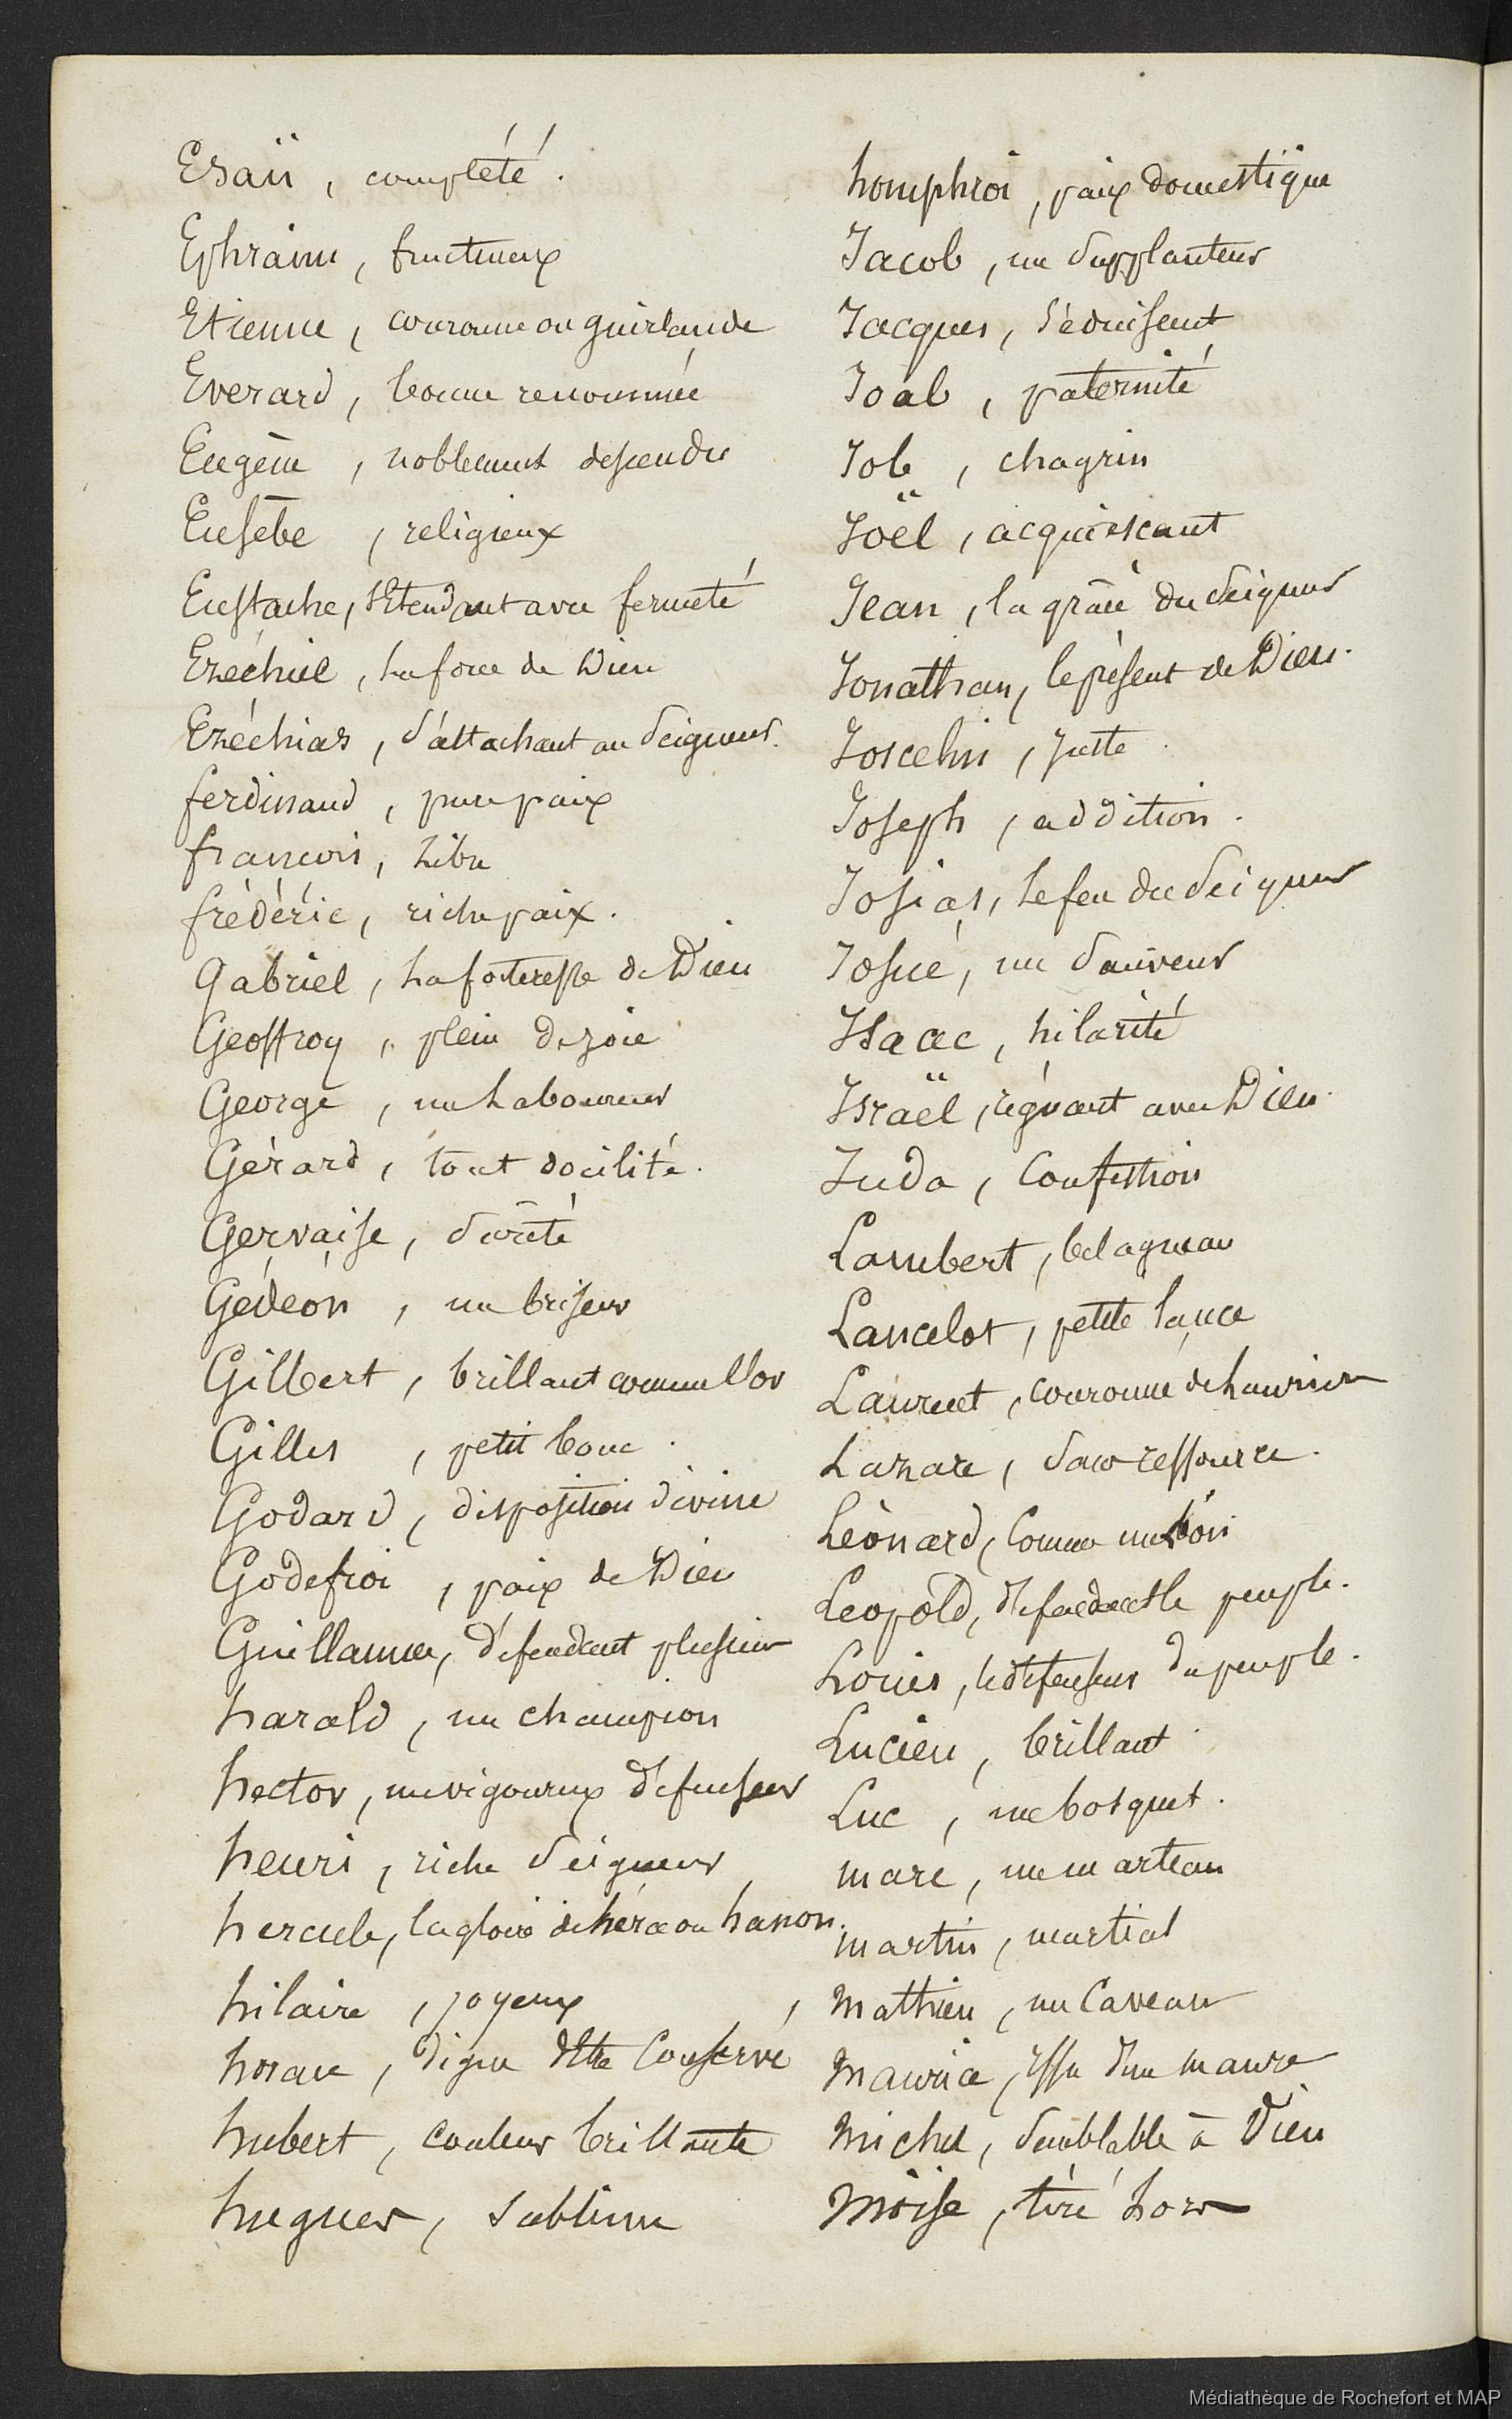 Esaü, complété.
Ephraim, fructueux
Etienne, couronne ou guirlande
Everard, bonne renommée
Eugène, noblement descendu
Eusèbe, religieux
Eustache, s'Etendant avec fermeté
Ezéchiel, la force de Dieu
Ezéchias, s'attachant au Seigneur.
ferdinand, pure paix
françois, libre
frédéric, riche paix.
Gabriel, la forteresse de Dieu
Geoffroy, plein de joie
George, un Laboureur
Gérard, tout docilité.
Gervaise, sûreté
Gédéon, un briseur
Gilbert, brillant comme l'or
Gilles, petit bouc.
Godard, disposition divine
Godefroi, paix de Dieu
Guillaume, défendant plusieurs
harald, un champion
hector, un vigoureux défenseur
henri, riche Seigneur
hercule, la gloire de héra ou hanon.
hilaire, joyeux
horace, digne d'Etre Conservé
hubert, couleur brillante
hugues, sublime
homphroi, paix domestique
Jacob, un supplanteur
Jacques, séduisant
Joab, paternité
Job, chagrin
Joël, acquiescant
Jean, la grâce du Seigneur
Jonathan, le présent de Dieu.
Joscelin, juste.
Joseph, addition.
Josias, le feu du Seigneur
Josué, un Sauveur
Isaac, hilarité
Israël, régnant avec Dieu.
Juda, Confession
Lambert, bel agneau
Lancelot, petite lance
Laurent, couronne de laurier
Lazare, sans ressource.
Léonard, Comme un Lion
Léopold, défendant le peuple.
Louis, le défenseur du peuple.
Lucien, brillant.
Luc, un bosquet.
marc, un marteau
martin, martial
Mathieu, un Caveau
Maurice, issu d'un maure
Michel, semblable à Dieu
Moïse, tiré hors
Médiathèque de Rochefort et MAP